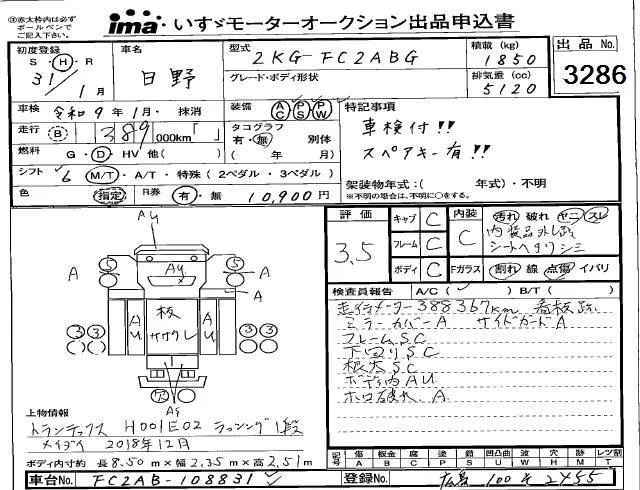 ③赤太枠内は必ず
ボールペンで
ご記入下さい。
ima いすゞモーターオークション出品申込書
初度登録 S・H・R 31/1月
車名 日野
型式 2KG-FC2ABG
グレード・ボディ形状
積載(kg) 1850
排気量(cc) 5120
出品No. 3286
車検 令和9年1月・抹消
装備 AC PS PW
走行 B 389,000km「 」
タコグラフ 有・無 別体
( 年 月)
燃料 G・D・HV 他( )
シフト 6 M/T・A/T・特殊(2ペダル・3ペダル)
色 指定 R券 有・無 10,900円
特記事項
車検付!!
スペアキー有!!
架装物年式:( 年式)・不明
※不明の場合は、年式不明に○をする。
評価 3.5
キャブ C
フレーム C
ボディ C
内装 C
汚れ 破れ ヤニ スレ
内装品外し跡
シートヘタリシミ
Fガラス 割れ 線 点傷 イバリ
検査員報告 A/C( ) B/T( )
走行メーター388367km 看板跡
ミラーカバーA サイドガードA
フレームSC
下回りSC
根太SC
ボディ内AU
ホロ破れ A
AU
5 5
A AU A
A
3 3 AU 板 ササクレ AU 3 3
AS
上物情報
トランテックス H001E02 ラッシング1段
メイダイ 2018年12月
ボディ内寸約 長8.50m×幅2.35m×高2.51m
記号 傷A 板金B 腐C 塗P 錆S 凹凸曲U 波W 穴H ×M レツ割T
車台No. FC2AB-108831
登録No. 広島 100 き 2455